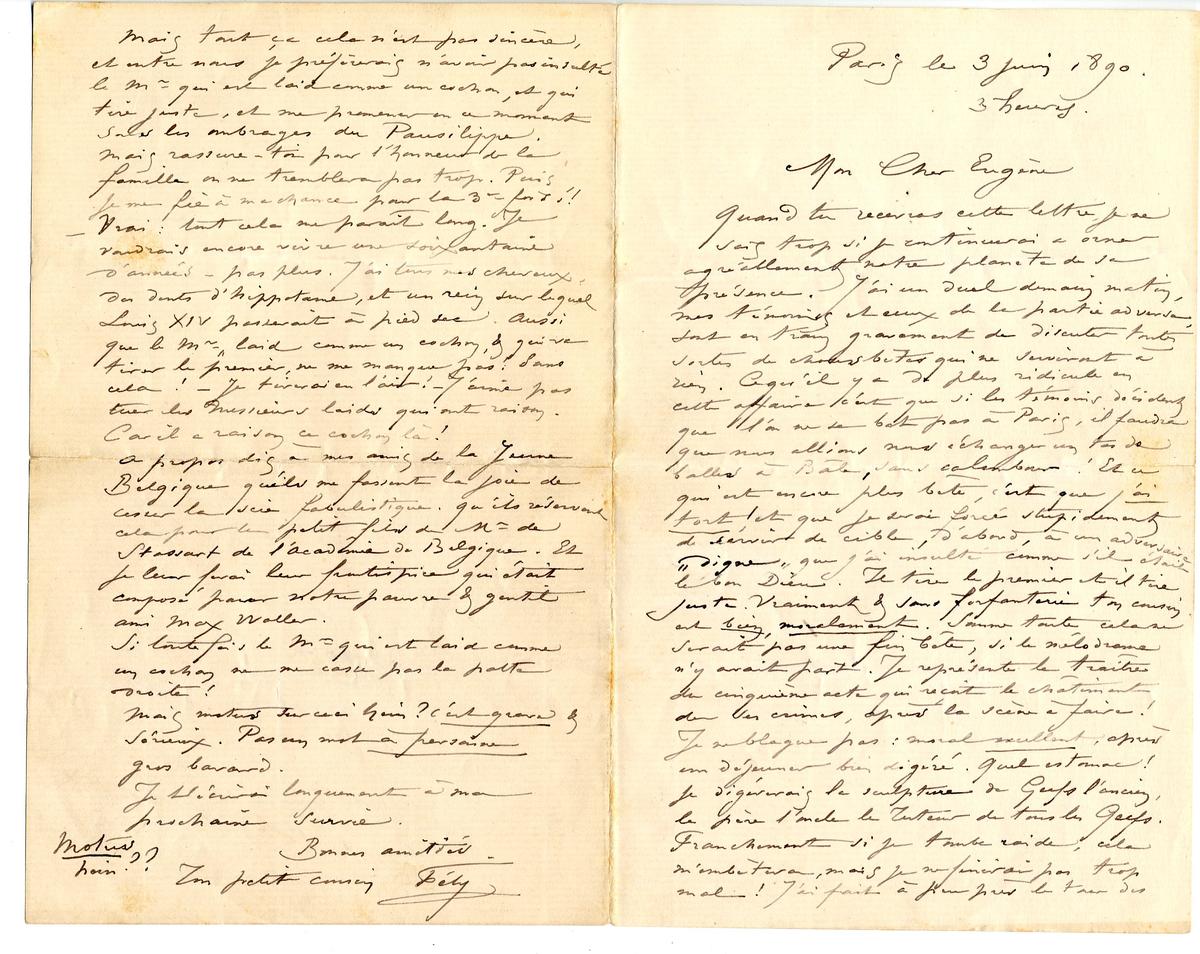 Paris le 3 juin 1890.
3 heures.
Mon Cher Eugène
Quand tu recevras cette lettre, je ne
sais trop si je continuerai a orner
agréablement notre planète de sa
présence. J'ai un duel demain matin,
mes témoins et ceux de la partie adverse,
sont en train gravement de discuter toutes
sortes de choses bêtes qui ne serviront à
rien. Ce qu'il y a de plus ridicule en
cette affaire c'est que si les témoins décident
que l'on ne se bat pas à Paris, il faudra
que nous allions nous échanger un tas de
balles à Bâle, sans calembour ! Et ce
qui est encore plus bête, c'est que j'ai
tort ! et que je serai forcé stupidement
de servir de cible, d'abord, à un adversaire
"digne" que j'ai insulté comme s'il était
le bon Dieu. Il tire le premier et il tire
juste. Vraiment & sans forfanterie ton cousin
est bien, moralement. Somme toute cela ne
serait pas une fin bête, si le mélodrame
n'y avait part. Je représente le traître
du cinquième acte qui reçoit le châtiment
de ses crimes, après la scène a faire !
Je ne blague pas : moral excellent, après
un déjeuner bien digéré. Quel estomac !
je digérerais la sculpture de Geefs l'ancien,
le père l'oncle le Tuteur de tous les Geefs.
Franchement si je tombe raide, cela
m'embêtera, mais je ne finirai pas trop
mal ! J'ai fait à peu près le tour des
Mais tout ça cela n'est pas sincère,
et entre nous je préférerais n'avoir pas insulté
le Mr qui est laid comme un cochon, et qui
tire juste, et me promener en ce moment
sous les ombrages du Pausilippe.
Mais rassure-toi pour l'honneur de la
famille on ne tremblera pas trop. Puis
je me fie à ma chance pour la 3me fois !!
– Vrai : tout cela me paraît long. Je
voudrais encore vivre une soixantaine
d'années – pas plus. J'ai tous mes cheveux,
des dents d'hippotame, et un rein sur lequel
Louis XIV passerait à pied sec. Aussi
que le Mr, laid comme un cochon, & qui va
tirer le premier, ne me manque pas ! Sans
cela ! – Je tirerai en l'air ! – J'aime pas
tuer les Messieurs laids qui ont raison.
Car il a raison ce cochon là !
a propos dis à mes amis de la Jeune
Belgique qu'ils me fassent la joie de
cesser la scie fabulistique. qu'ils réservent
cela pour le petit fils de Mr de
Stassart de l'académie de Belgique. Et
je leur ferai leur frontispice qui était
composé par notre pauvre & gentil
ami Max Waller.
Si toutefois le Mr qui est laid comme
un cochon ne me casse pas la patte
droite !
Mais motus sur ceci hein ? c'est grave &
sérieux. Pas un mot à personne
gros bavard.
Je t'écrirai longuement à ma
prochaine survie.
Bonnes amitiés –
Ton petit cousin Fély
Motus
hein ??